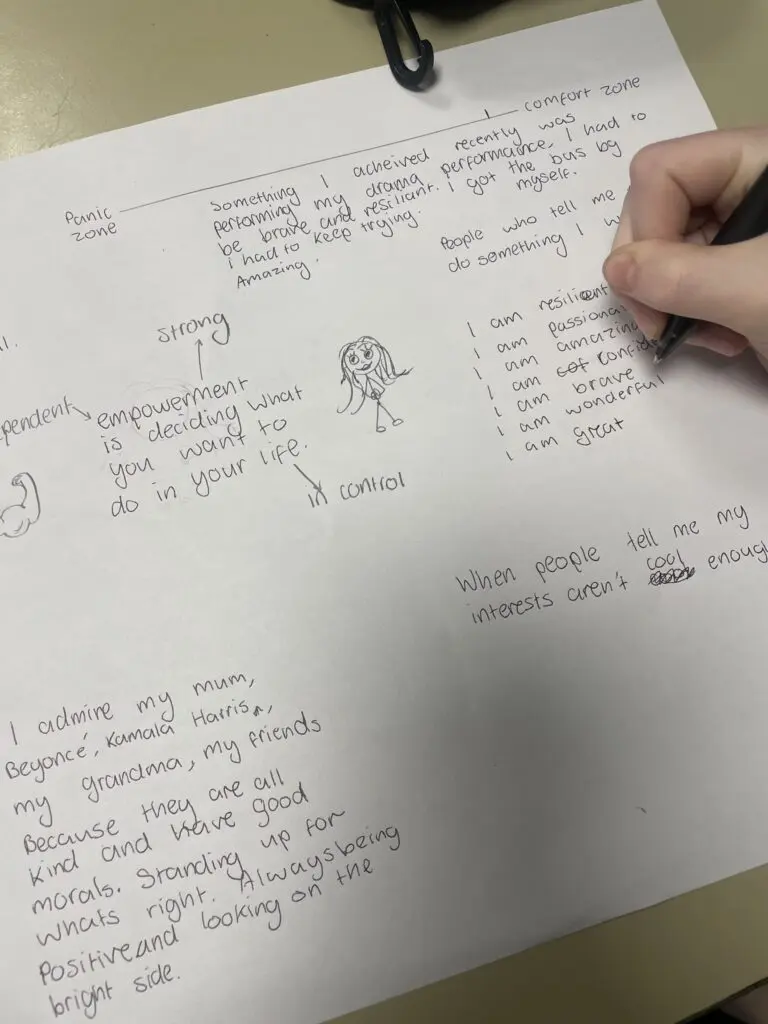 comfort zone
Panic
zone
Something I acheived recently was
performing my drama performance. I had to
be brave and resiliant. I got the bus by
i had to keep trying. myself.
Amazing.
People who tell me
do something I
strong
empowerment
is deciding what
you want to
do in your life.
in control
I am resilient
I am
I am
I am confid
I am brave
I am wonderful
I am great
When people tell me my
interests aren't cool enoug
I admire my mum,
Beyoncé, Kamala Harris,
my grandma, my friends
Because they are all
kind and have good
morals. Standing up for
whats right. Always being
Positive and looking on the
bright side.